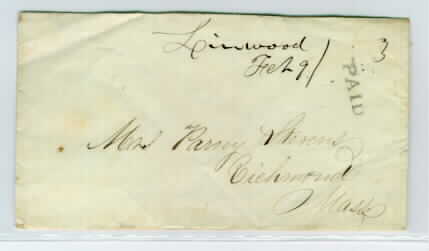 Linwood
Feb 9/
3
PAID
Mrs Parny Stevens
Richmond
Mass